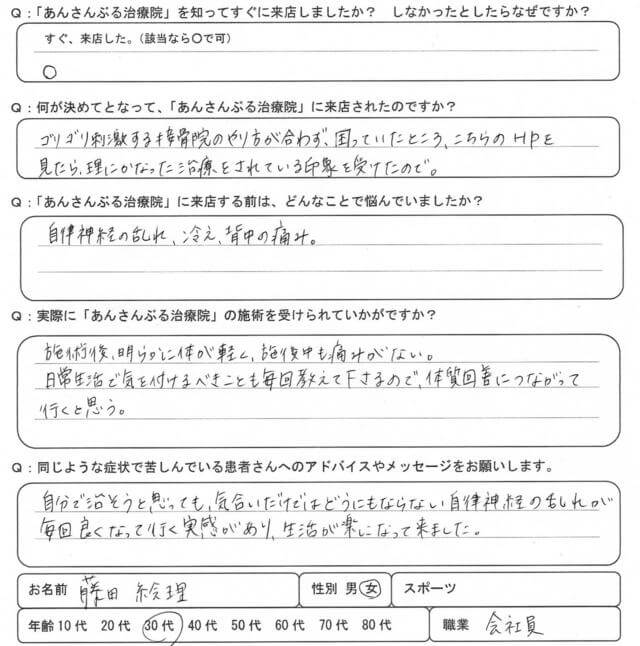 Q：「あんさんぶる治療院」を知ってすぐに来店しましたか？　しなかったとしたらなぜですか？
すぐ、来店した。（該当なら〇で可）
〇
Q：何が決めてとなって、「あんさんぶる治療院」に来店されたのですか？
ゴリゴリ刺激する接骨院のやり方が合わず、困っていたところ、こちらのHPを
見たら、理にかなった治療をされている印象を受けたので。
Q：「あんさんぶる治療院」に来店する前は、どんなことで悩んでいましたか？
自律神経の乱れ、冷え、背中の痛み。
Q：実際に「あんさんぶる治療院」の施術を受けられていかがですか？
施術後、明らかに体が軽く、施術中も痛みがない。
日常生活で気を付けるべきことも毎回教えて下さるので、体質回善につながって
行くと思う。
Q：同じような症状で苦しんでいる患者さんへのアドバイスやメッセージをお願いします。
自分で治そうと思っても、気合いだけではどうにもならない自律神経の乱れが
毎回良くなって行く実感があり、生活が楽になって来ました。
お名前　藤田　絵理　性別　男　女　スポーツ
年齢　10代　20代　30代　40代　50代　60代　70代　80代　職業　会社員